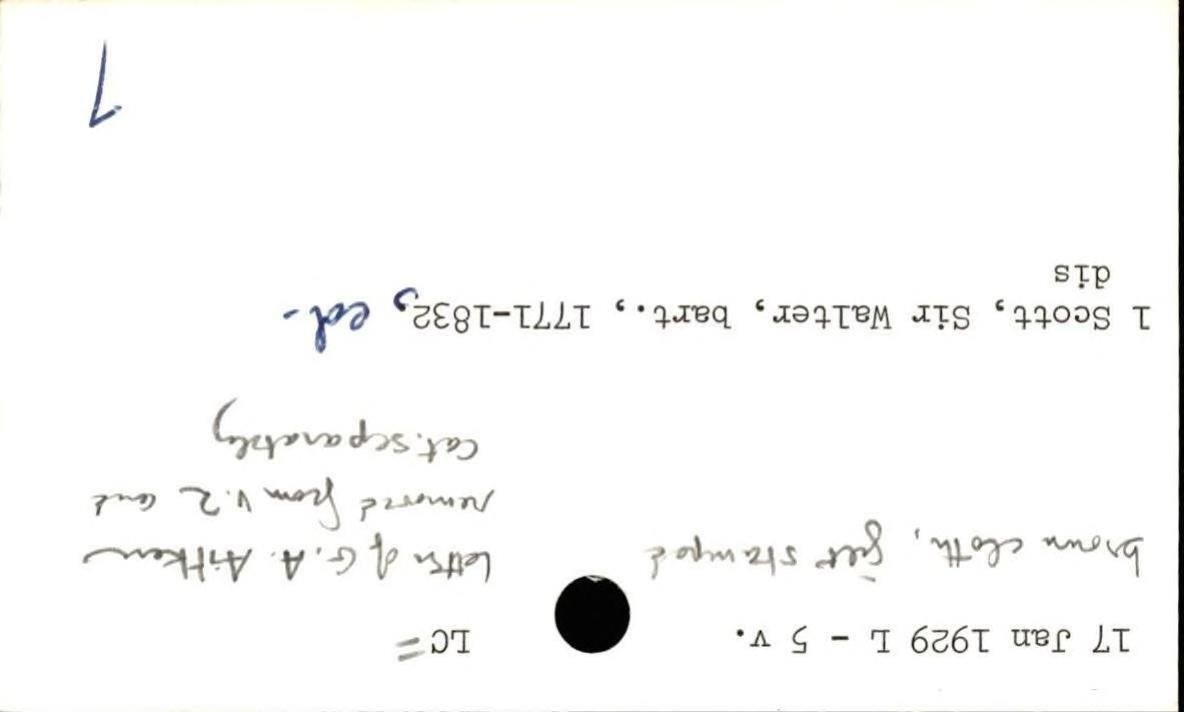 17 Jan 1929 L - 5 v.
LC =
brown cloth, gilt stamped
letter of G. A. Aitken
removed from v.2 and
cat. separately
1 Scott, Sir Walter, bart., 1771-1832, ed.
dis